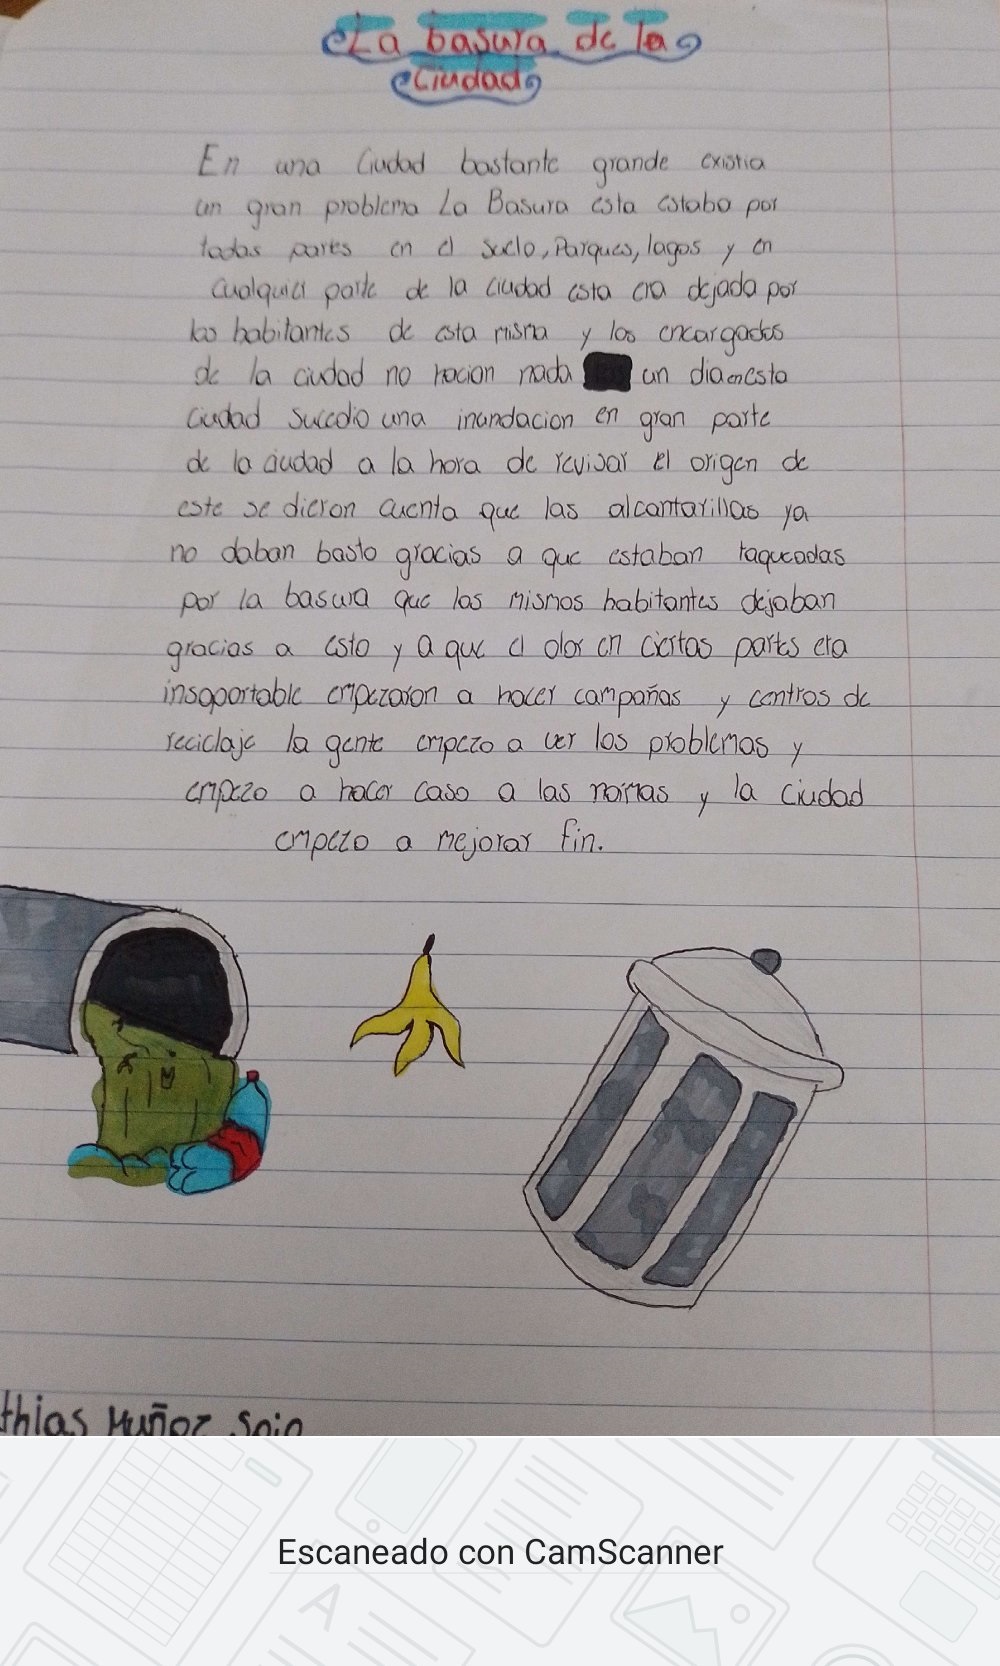 La basura de la
Ciudad
En una Ciudad bastante grande existia
un gran problema La Basura esta estaba por
todas partes en el suelo, Parques, lagos y en
cualquier parte de la ciudad esta era dejada por
los habitantes de esta misma y los encargados
de la ciudad no hacian nada un dia en esta
ciudad sucedio una inundacion en gran parte
de la ciudad a la hora de revisar el origen de
este se dieron cuenta que las alcantarillas ya
no daban basto gracias a que estaban taqueadas
por la basura que los mismos habitantes dejaban
gracias a esto y a que el olor en ciertas partes era
insoportable empezaron a hacer campañas y centros de
reciclaje la gente empezo a ver los problemas y
empezo a hacer caso a las normas y la ciudad
empezo a mejorar fin.
thias Muñoz
Escaneado con CamScanner